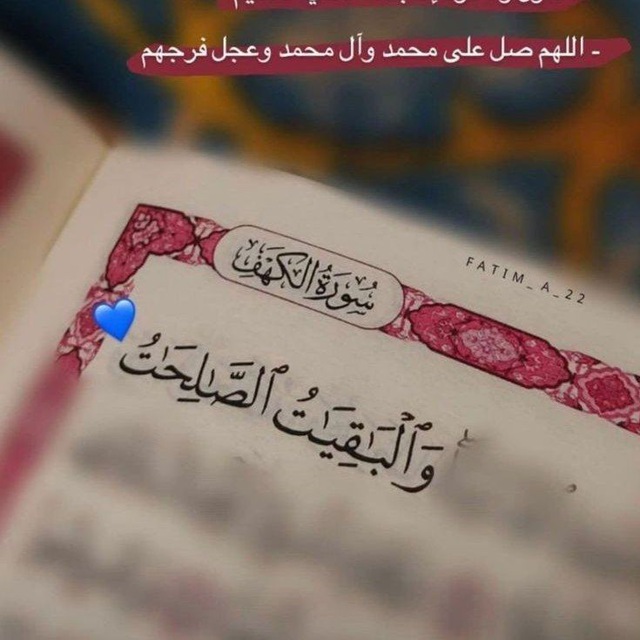 - اللهم صل على محمد وآل محمد وعجل فرجهم
FATIM_A_22
سُورَةُ الكَهْفِ
وَٱلْبَـٰقِيَـٰتُ ٱلصَّـٰلِحَـٰتُ